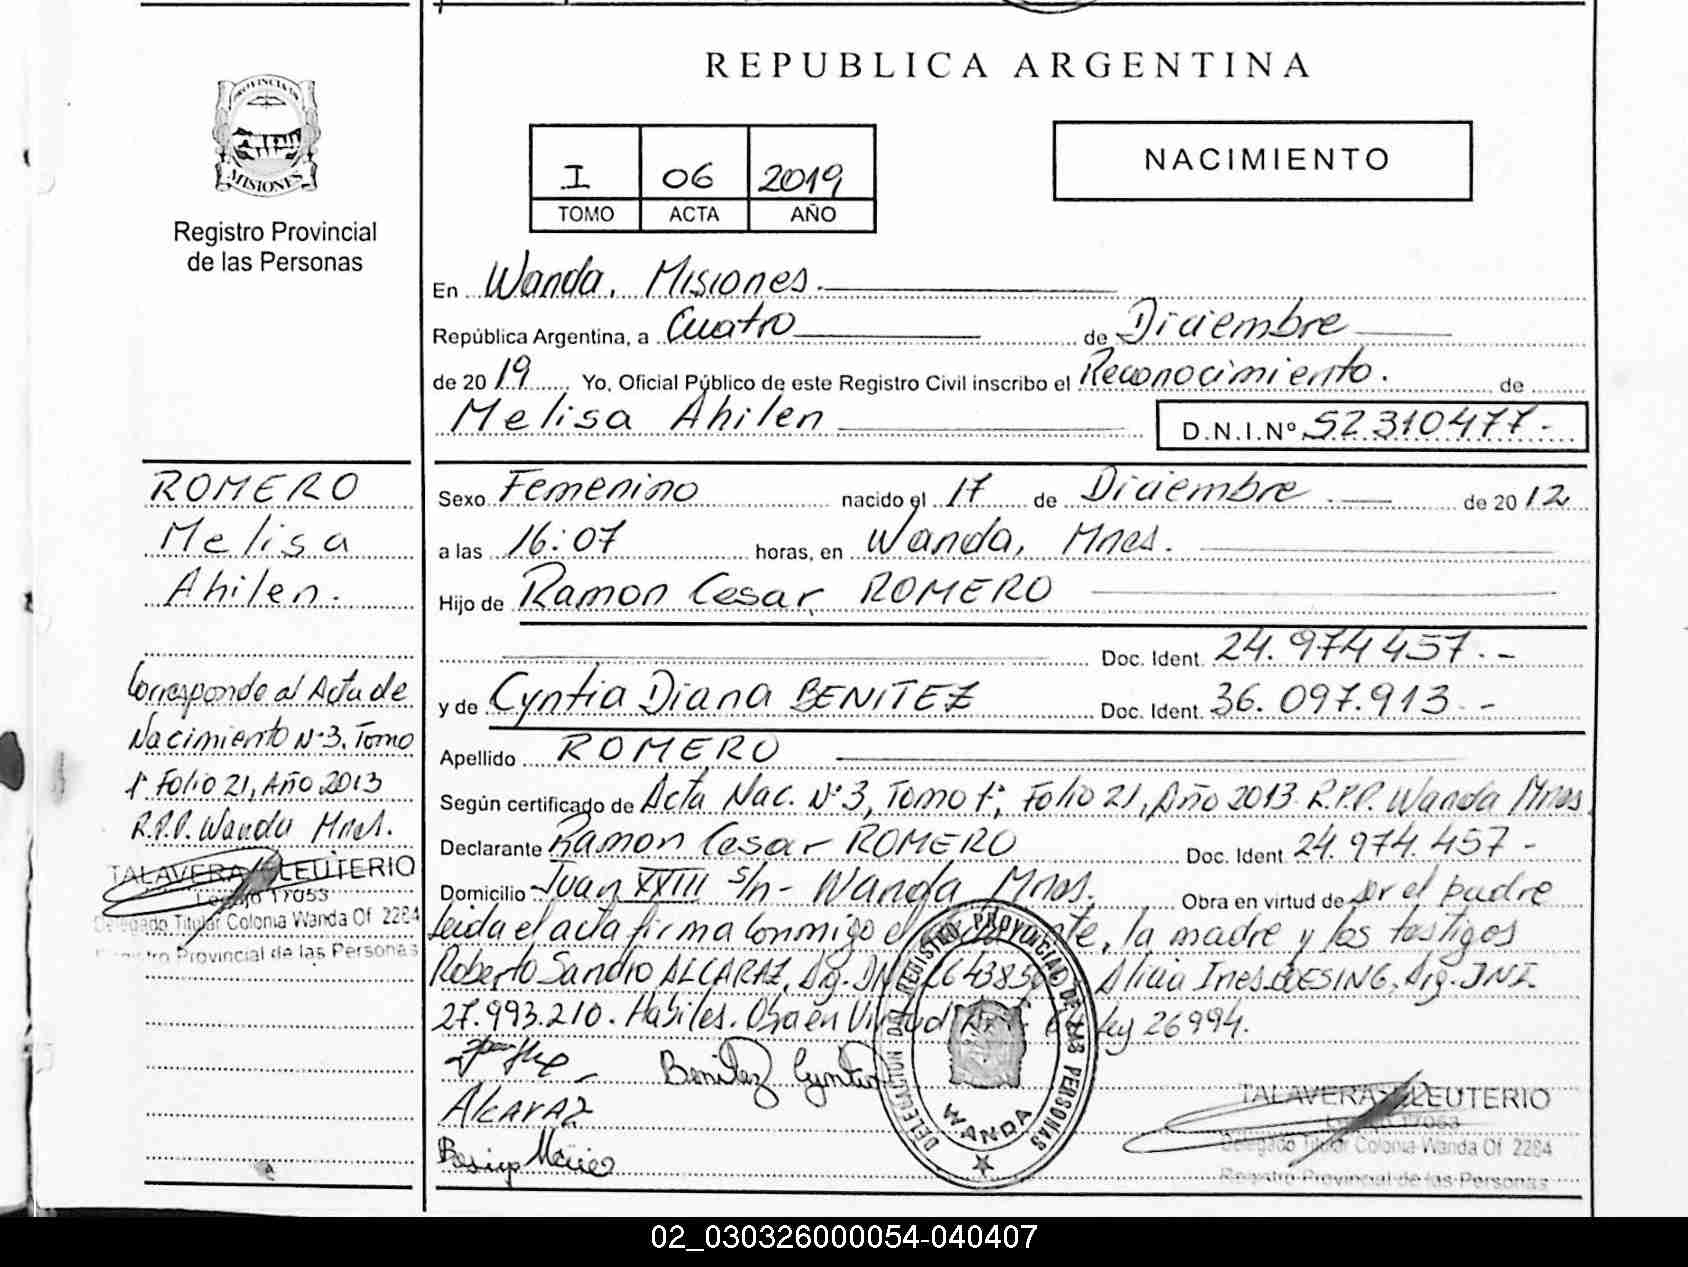 REPUBLICA ARGENTINA
PROVINCIA DE
MISIONES
Registro Provincial
de las Personas
I 06 2019
TOMO ACTA AÑO
NACIMIENTO
En Wanda, Misiones.
República Argentina, a Cuatro de Diciembre
de 2019 Yo, Oficial Público de este Registro Civil inscribo el Reconocimiento. de
Melisa Ahilen D.N.I.Nº 52310477.-
ROMERO
Melisa
Ahilen.
Corresponde al Acta de
Nacimiento Nº3, Tomo
1º Folio 21, Año 2013
R.P.P. Wanda Mnes.
TALAVERA ELEUTERIO
Legajo 17053
Delegado Titular Colonia Wanda Of 2284
Registro Provincial de las Personas
Sexo Femenino nacido el 17 de Diciembre de 2012
a las 16:07 horas, en Wanda, Mnes.
Hijo de Ramon Cesar ROMERO
Doc. Ident. 24.974457.-
y de Cyntia Diana BENITEZ Doc. Ident. 36.097.913.-
Apellido ROMERO
Según certificado de Acta Nac. Nº3, Tomo 1º, Folio 21, Año 2013 R.P.P. Wanda Mnes
Declarante Ramon Cesar ROMERO Doc. Ident 24.974.457-
Domicilio Juan XXIII s/n- Wanda Mnes. Obra en virtud de ser el padre
leida el acta firma conmigo el la madre y los testigos
Roberto Sandro ALCARAZ, Arg. DNI Alicia Ines Arg. DNI
27.993.210. Habiles. Obra en Virtud Ley 26994.
Benitez Cyntia
Alcaraz
DELEGACION DEL REGISTRO PROVINCIAL DE LAS PERSONAS
WANDA
TALAVERA ELEUTERIO
Legajo 17053
Delegado Titular Colonia Wanda Of 2284
Registro Provincial de las Personas
02_030326000054-040407